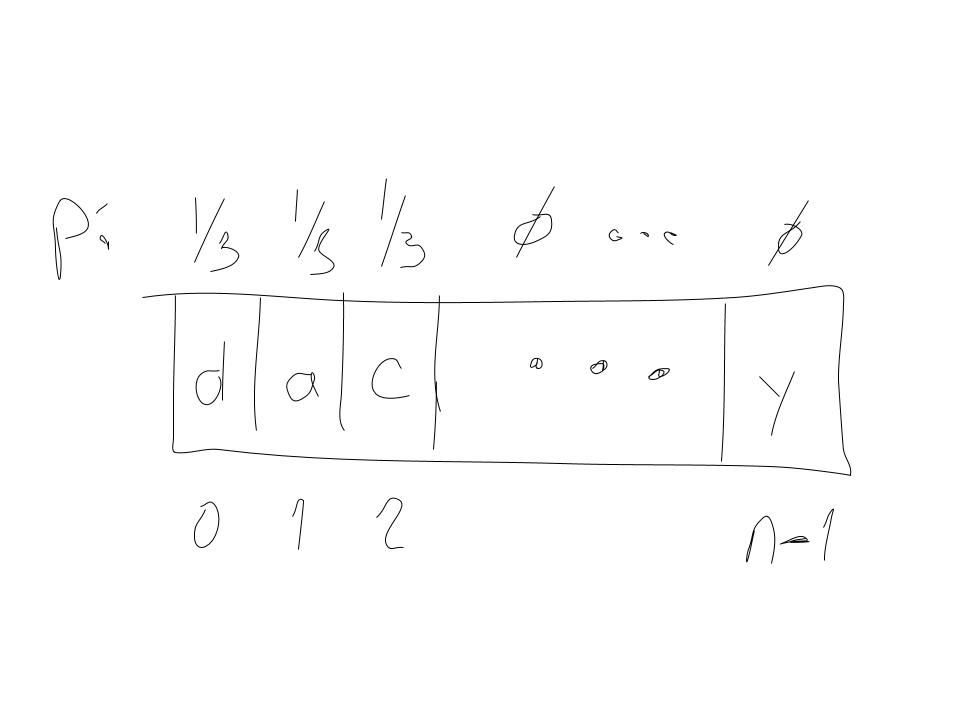 p: 1/3 1/3 1/3 ϕ ... ϕ
d a c ... y
0 1 2 n-1